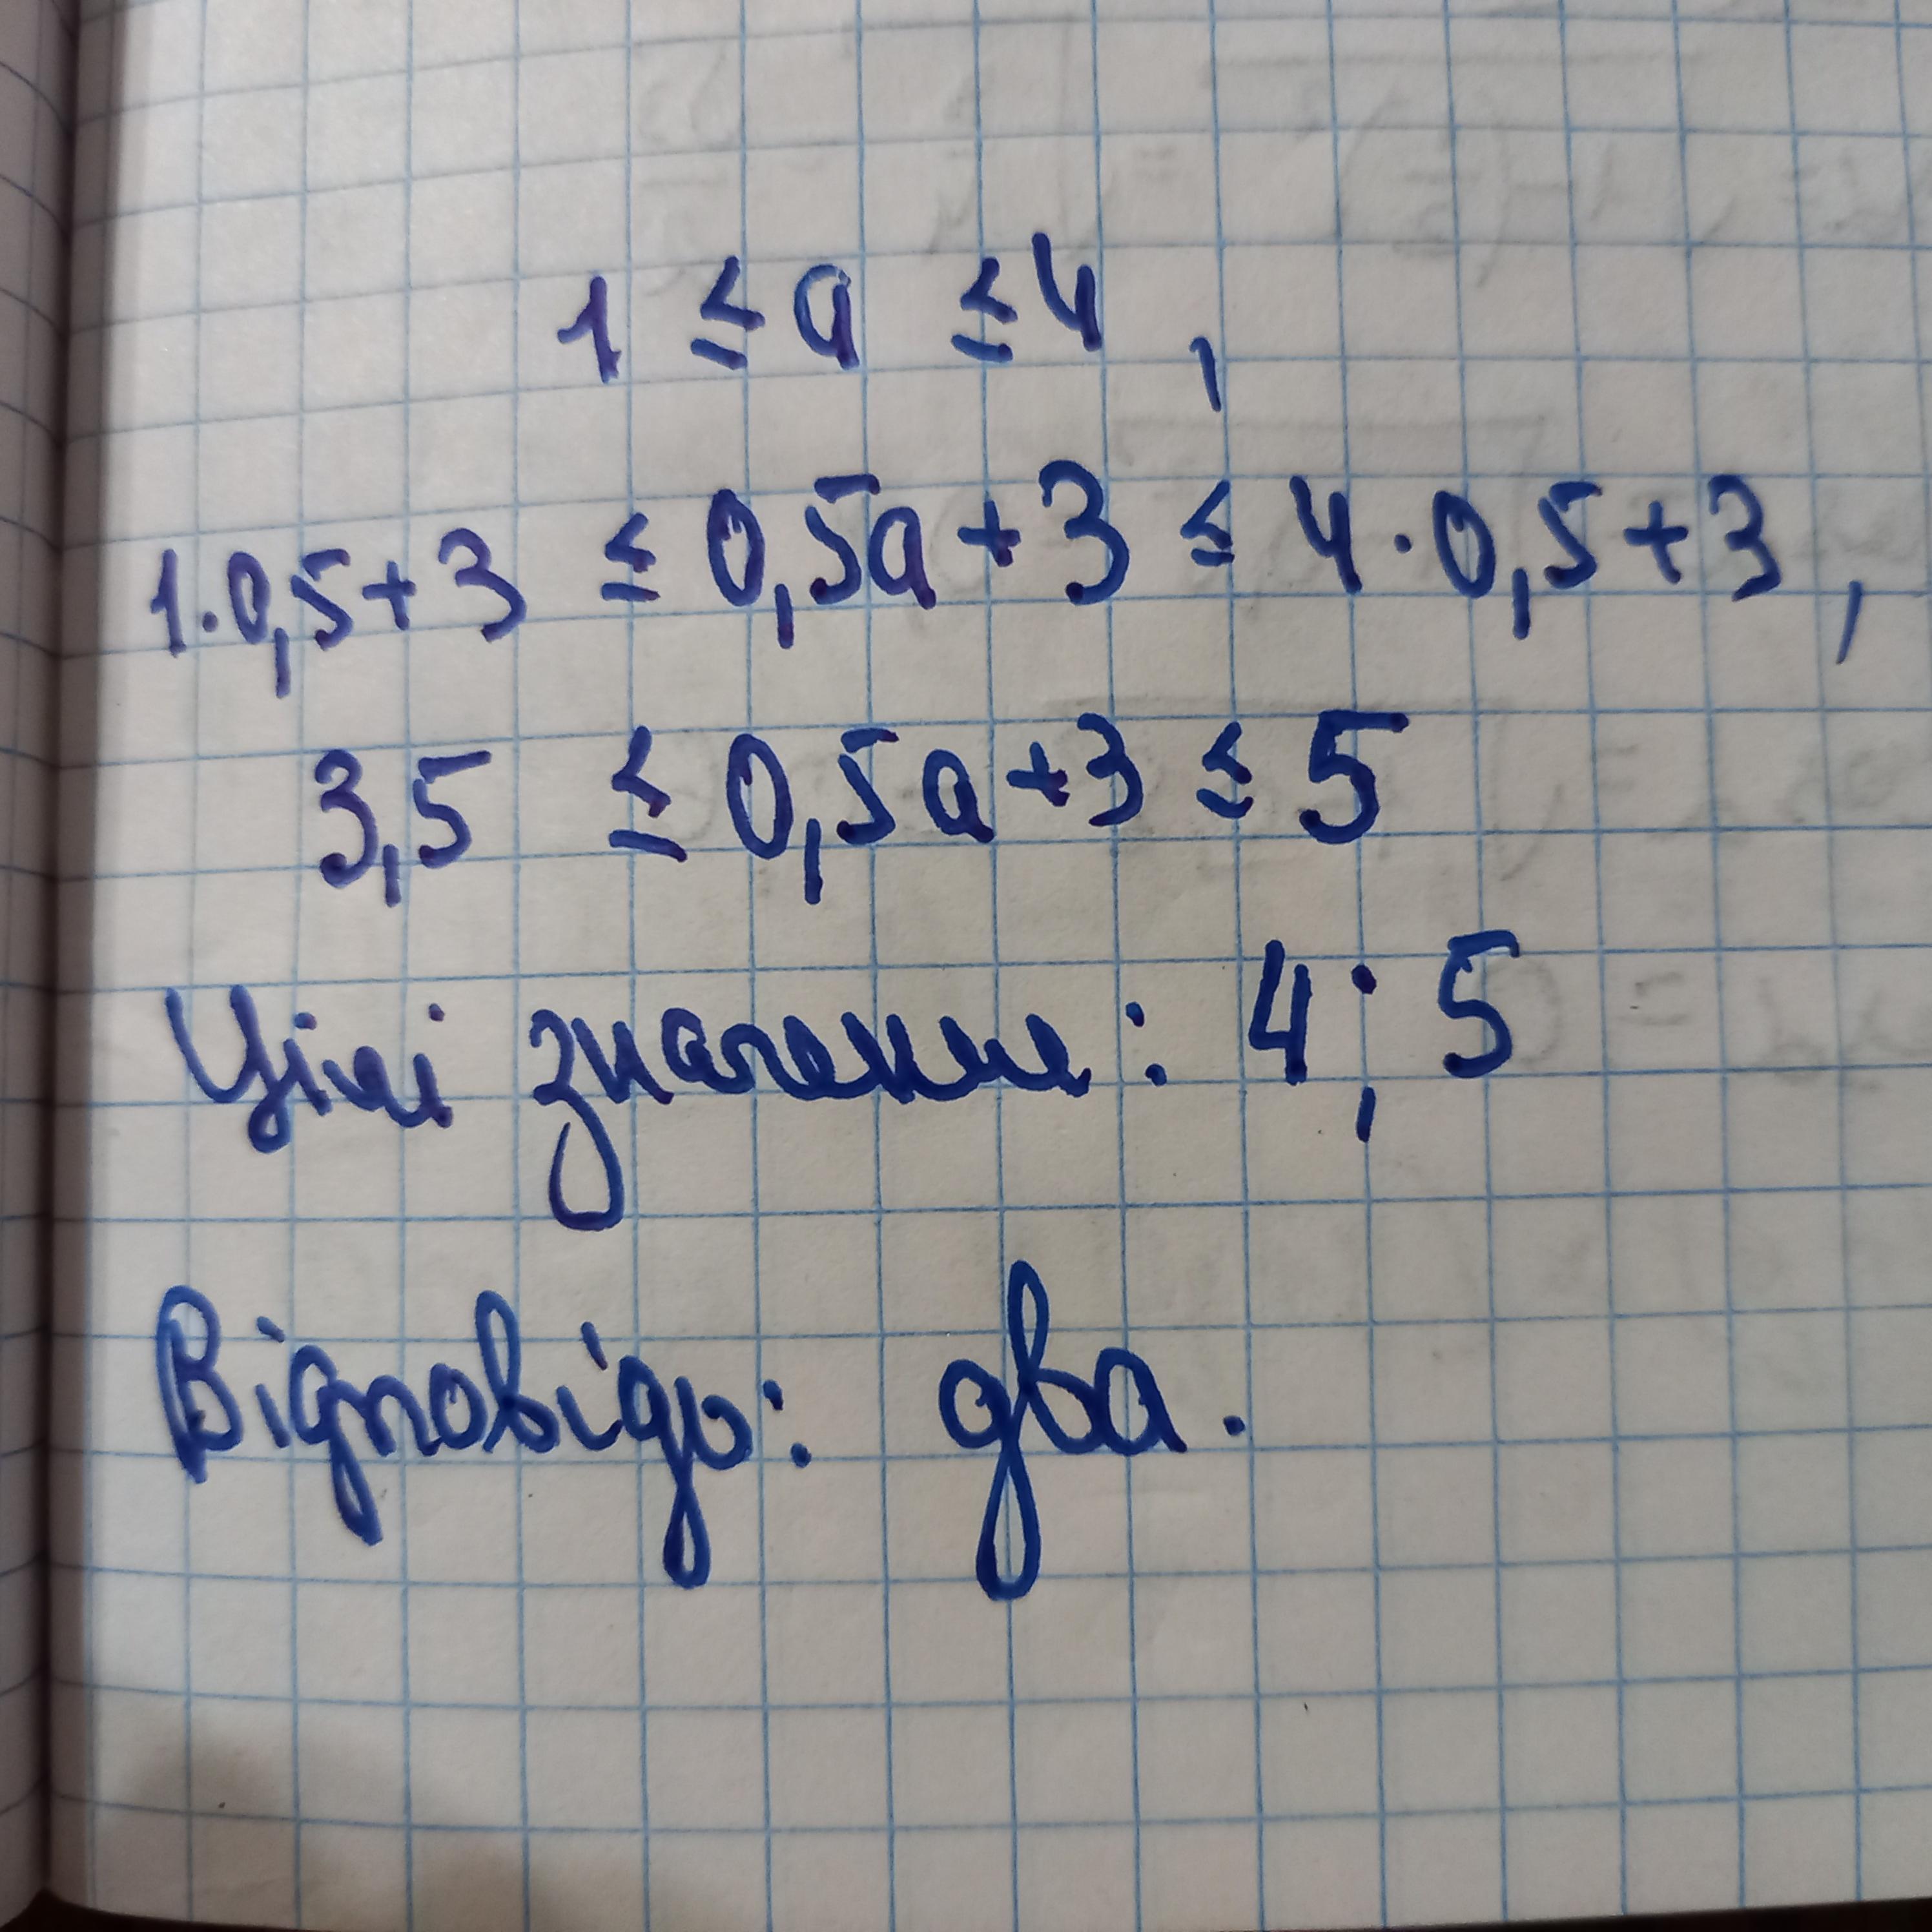 1 ≤ a ≤ 4,
1·0,5+3 ≤ 0,5a+3 ≤ 4·0,5+3,
3,5 ≤ 0,5a+3 ≤ 5
Цілі значення: 4; 5
Відповідь: два.